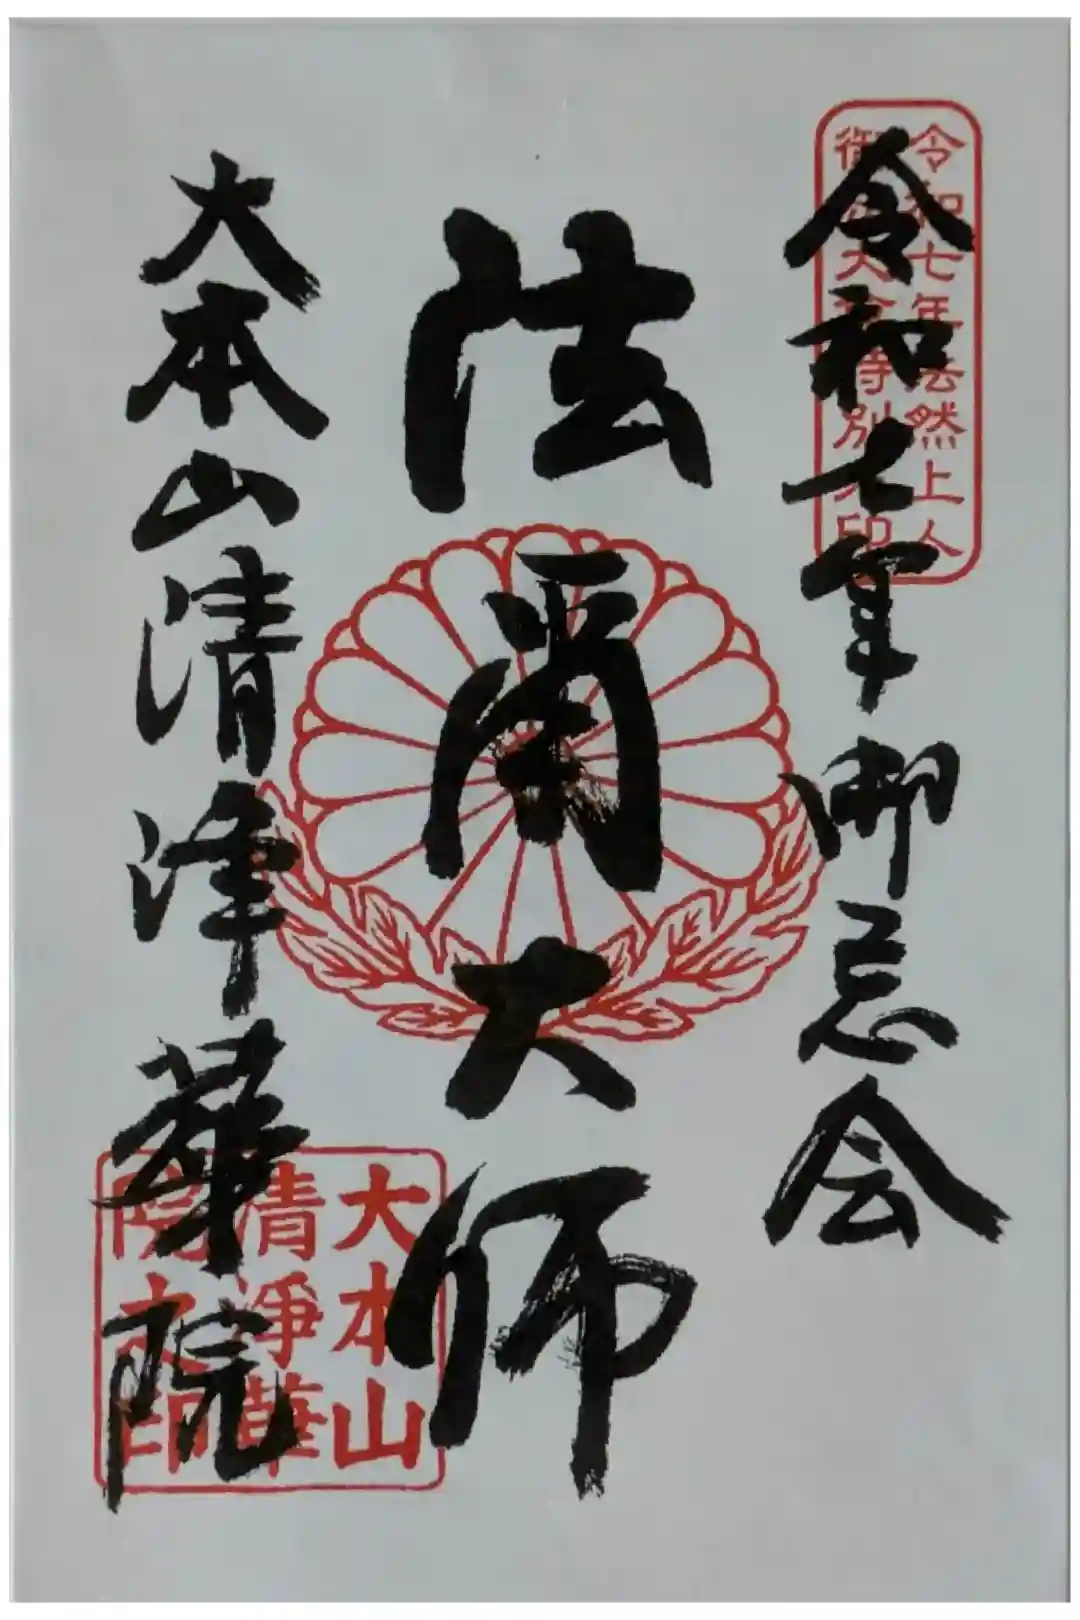 令和七年御忌会
令和七年法然上人
御忌大会特別朱印
法爾大師
大本山清浄華院
大本山
清淨華
院之印